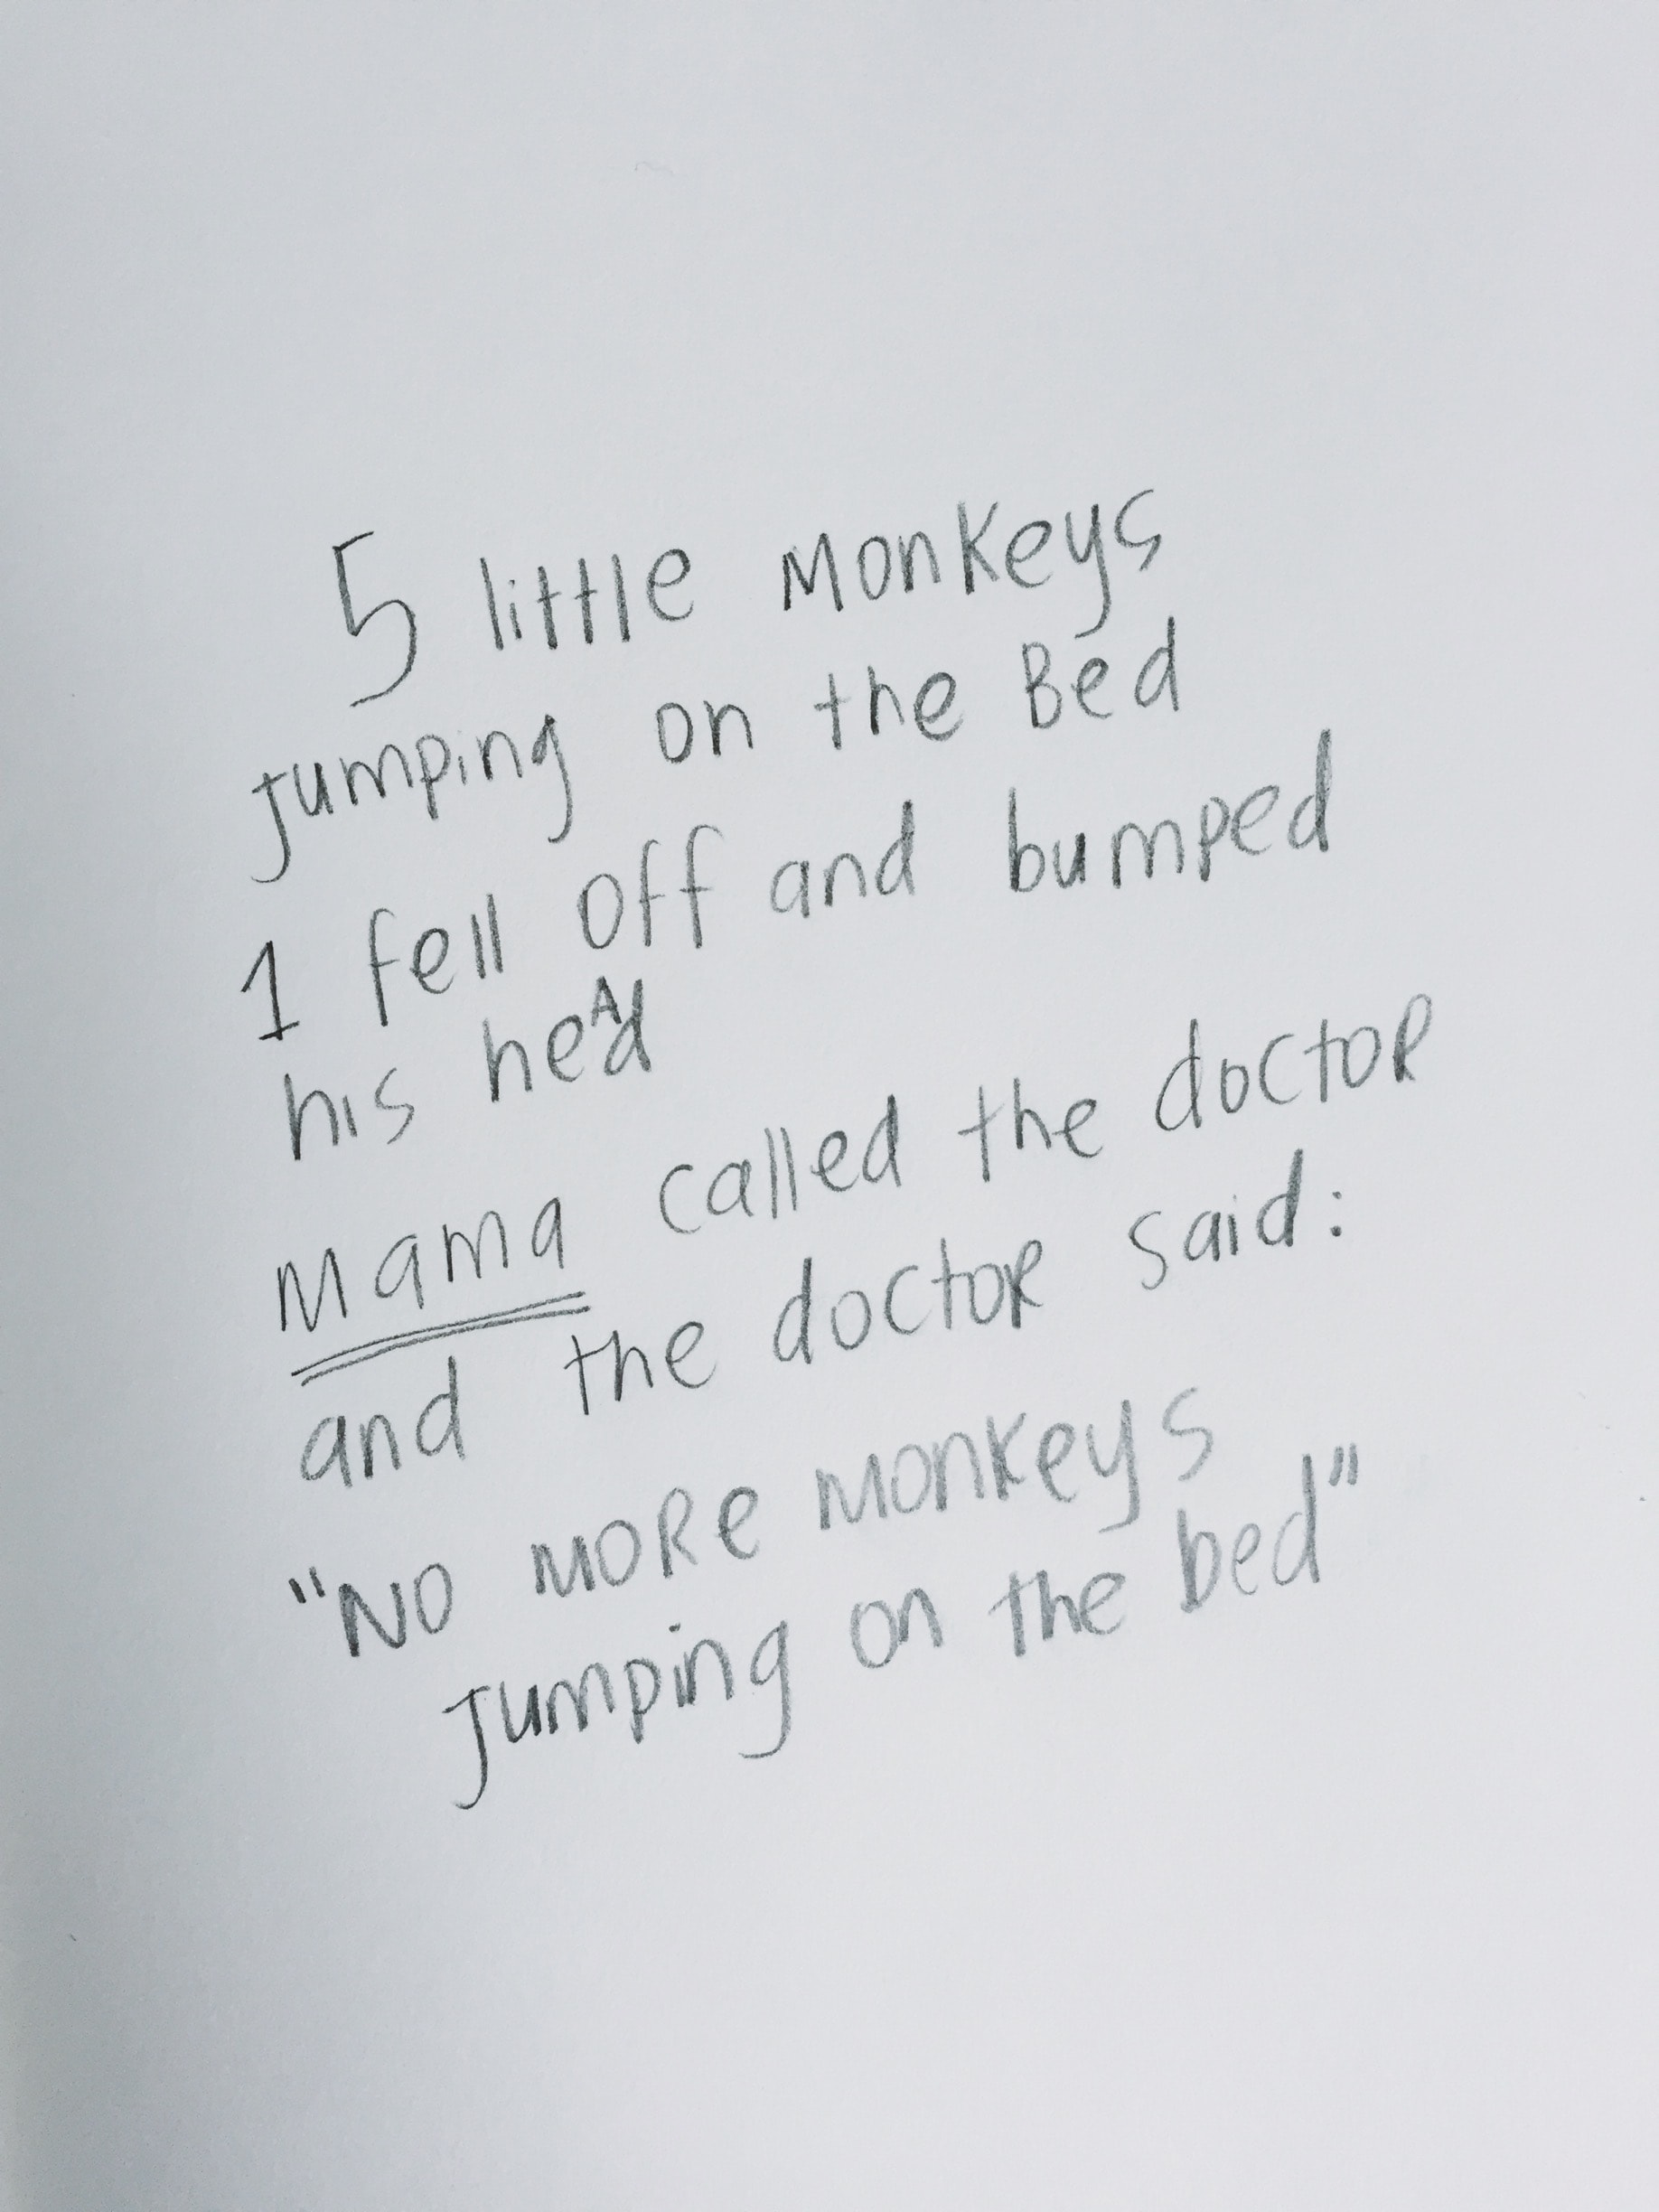 5 little Monkeys
Jumping on the Bed
1 fell off and bumped
his heAd
Mama called the doctoR
and the doctoR said:
"NO MORe monkeys
Jumping on the bed"